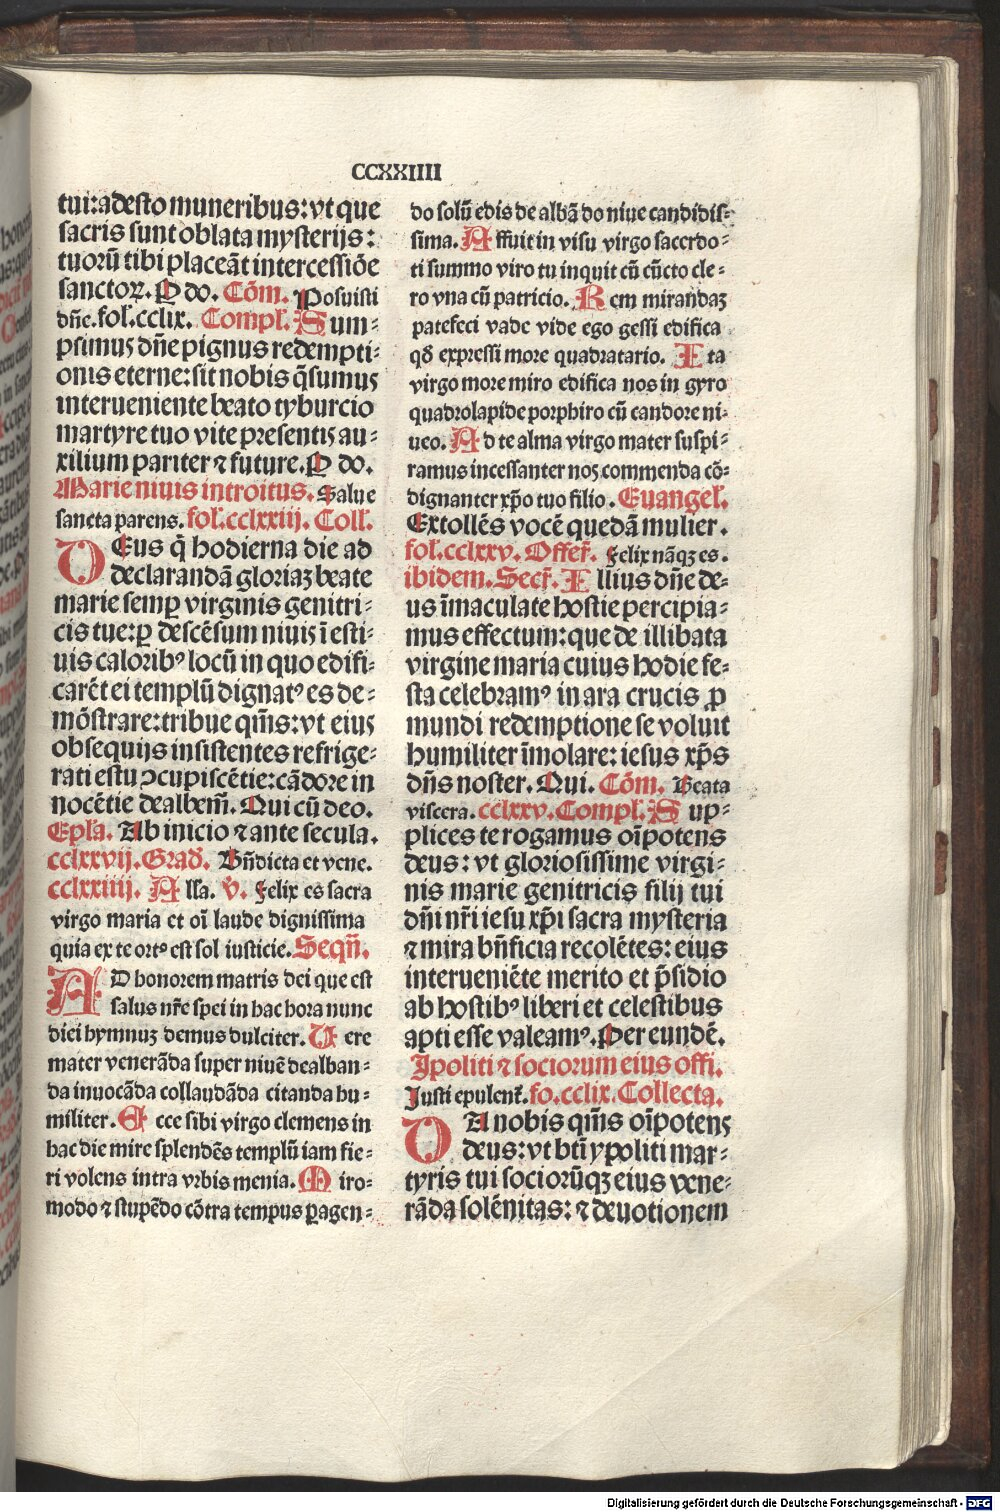 CCXXIIII
tui: adesto muneribus: vt que
sacris sunt oblata mysterijs:
tuorū tibi placeāt intercessiōe
sanctoꝝ. P do. Cōm. Posuisti
dn̄e. fol. cclix. Compl. Sum-
psimus dn̄e pignus redempti-
onis eterne: sit nobis q̄sumus
interueniente beato tyburcio
martyre tuo vite presentis au-
xilium pariter ⁊ future. P do.
Marie niuis introitus. Salue
sancta parens. fol. cclxxiij. Coll.
DEus q̄ hodierna die ad
declarandā gloriaꝫ beate
marie semꝑ virginis genitri-
cis tue: ꝑ descēsum niuis ī esti-
uis caloribꝰ locū in quo edifi-
carēt ei templū dignatꝰ es de-
mōstrare: tribue qm̄s: vt eius
obsequijs insistentes refrige-
rati estu ꝯcupiscētie: cādore in
nocētie dealbem̄. Qui cū deo.
Epl̄a. Ab inicio ⁊ ante secula.
cclxxvij. Grad. Bn̄dicta et vene.
cclxxiiij. Alla. v̄. Felix es sacra
virgo maria et oī laude dignissima
quia ex te ortꝰ est sol iusticie. Seqn̄.
AD honorem matris dei que est
salus nr̄e spei in hac hora nunc
dici hymnuꝫ demus dulciter. Uere
mater venerāda super niuē dealban-
da inuocāda collaudāda citanda hu-
militer. Ecce sibi virgo clemens in
hac die mire splendēs templū iam fie-
ri volens intra vrbis menia. Miro-
modo ⁊ stupēdo cōtra tempus ꝑagen-
do solū edis de albā do niue candidis-
sima. Affuit in visu virgo sacerdo-
ti summo viro tu inquit cū cūcto cle-
ro vna cū patricio. Rem mirandaꝫ
patefeci vade vide ego gessi edifica
qđ expressi more quadratario. Ita
virgo more miro edifica nos in gyro
quadrolapide porphiro cū candore ni-
ueo. Ad te alma virgo mater suspi-
ramus incessanter nos commenda cō-
dignanter xp̄o tuo filio. Euangel.
Extollēs vocē quedā mulier.
fol. cclxxv. Offer̄. Felix nāqꝫ es.
ibidem. Secr̄. Illius dn̄e de-
us īmaculate hostie percipia-
mus effectum: que de illibata
virgine maria cuius hodie fe-
sta celebramꝰ in ara crucis ꝓ
mundi redemptione se voluit
humiliter īmolare: iesus xp̄s
dn̄s noster. Qui. Cōm. Beata
viscera. cclxxv. Compl. Sup-
plices te rogamus oīpotens
deus: vt gloriosissime virgi-
nis marie genitricis filij tui
dn̄i nr̄i iesu xp̄i sacra mysteria
⁊ mira bn̄ficia recolētes: eius
interueniēte merito et p̄sidio
ab hostibꝰ liberi et celestibus
apti esse valeamꝰ. Per eundē.
Ipoliti ⁊ sociorum eius offi.
Iusti epulent̄. fo. cclix. Collecta.
DA nobis qm̄s oīpotens
deus: vt bt̄i ypoliti mar-
tyris tui sociorūqꝫ eius vene-
rāda solēnitas: ⁊ deuotionem
Digitalisierung gefördert durch die Deutsche Forschungsgemeinschaft - DFG